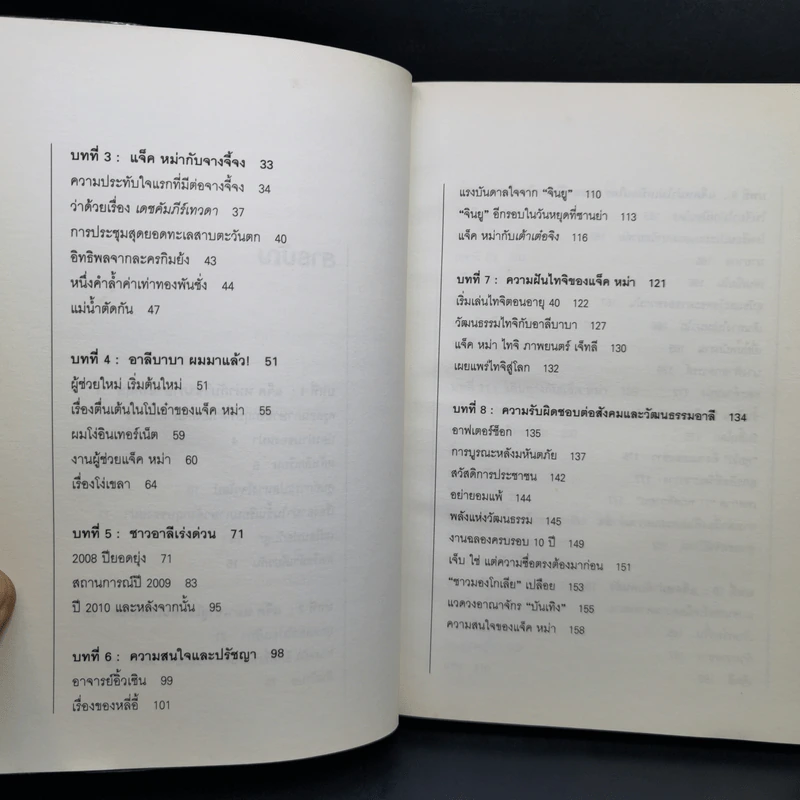 บทที่ 3 : แจ็ค หม่ากับจางจี้จง 33
ความประทับใจแรกที่มีต่อจางจี้จง 34
ว่าด้วยเรื่อง เดชคัมภีร์เทวดา 37
การประชุมสุดยอดทะเลสาบตะวันตก 40
อิทธิพลจากละครกิมย้ง 43
หนึ่งคำล้ำค่าเท่าทองพันชั่ง 44
แม่น้ำตัดกัน 47
บทที่ 4 : อาลีบาบา ผมมาแล้ว! 51
ผู้ช่วยใหม่ เริ่มต้นใหม่ 51
เรื่องตื่นเต้นในโป้เอ๋าของแจ็ค หม่า 55
ผมโง่อินเทอร์เน็ต 59
งานผู้ช่วยแจ็ค หม่า 60
เรื่องโง่เขลา 64
บทที่ 5 : ชาวอาลีเร่งด่วน 71
2008 ปียอดยุ่ง 71
สถานการณ์ปี 2009 83
ปี 2010 และหลังจากนั้น 95
บทที่ 6 : ความสนใจและปรัชญา 98
อาจารย์อิ้วเซิน 99
เรื่องของหลี่อี้ 101
แรงบันดาลใจจาก "จินยู" 110
"จินยู" อีกรอบในวันหยุดที่ซานย่า 113
แจ็ค หม่ากับเต้าเต๋อจิง 116
บทที่ 7 : ความฝันไทจิของแจ็ค หม่า 121
เริ่มเล่นไทจิตอนอายุ 40 122
วัฒนธรรมไทจิกับอาลีบาบา 127
แจ็ค หม่า ไทจิ ภาพยนตร์ เจ็ทลี 130
เผยแพร่ไทจิสู่โลก 132
บทที่ 8 : ความรับผิดชอบต่อสังคมและวัฒนธรรมอาลี 134
อาฟเตอร์ช็อก 135
การบูรณะหลังมหันตภัย 137
สวัสดิการประชาชน 142
อย่ายอมแพ้ 144
พลังแห่งวัฒนธรรม 145
งานฉลองครบรอบ 10 ปี 149
เจ็บ ใช่ แต่ความซื่อตรงต้องมาก่อน 151
"ชาวมองโกเลีย" เปลือย 153
แวดวงอาณาจักร "บันเทิง" 155
ความสนใจของแจ็ค หม่า 158